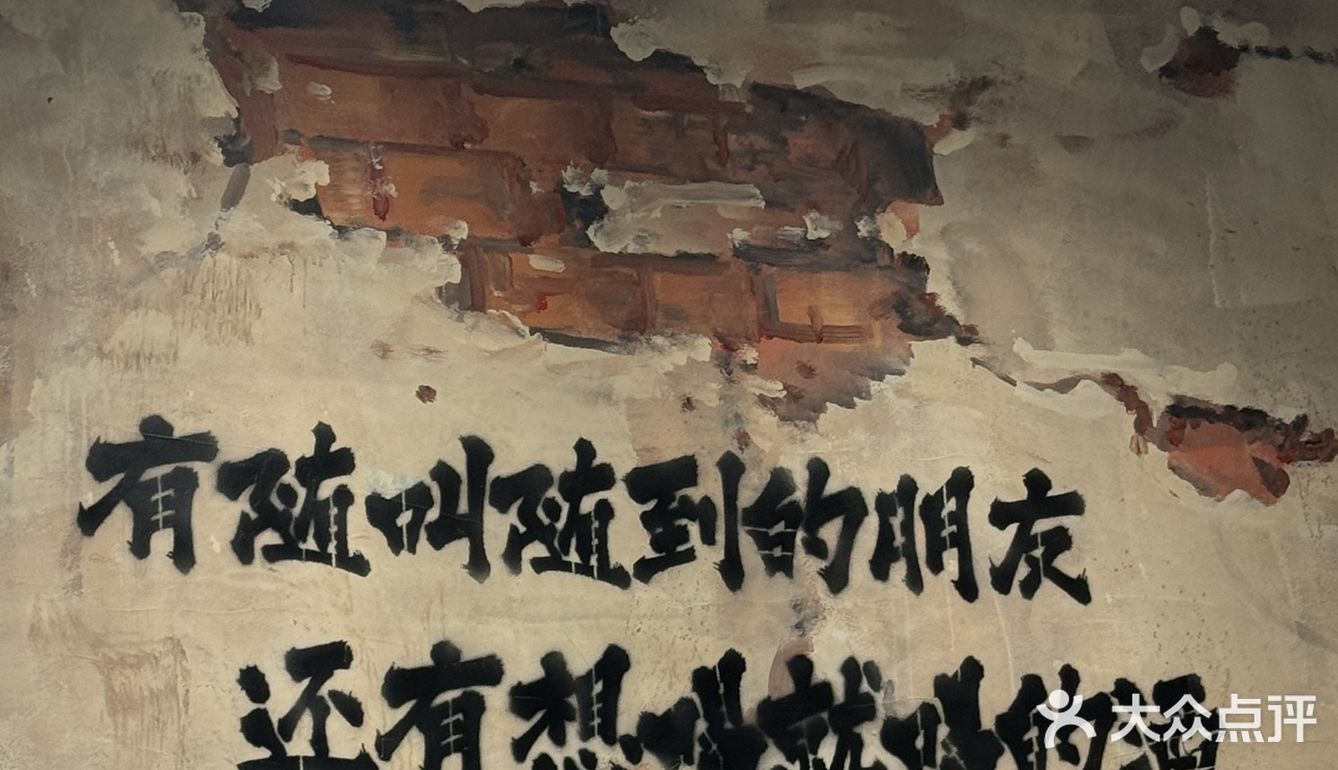 有随叫随到的朋友
还有想叫就叫的
大众点评